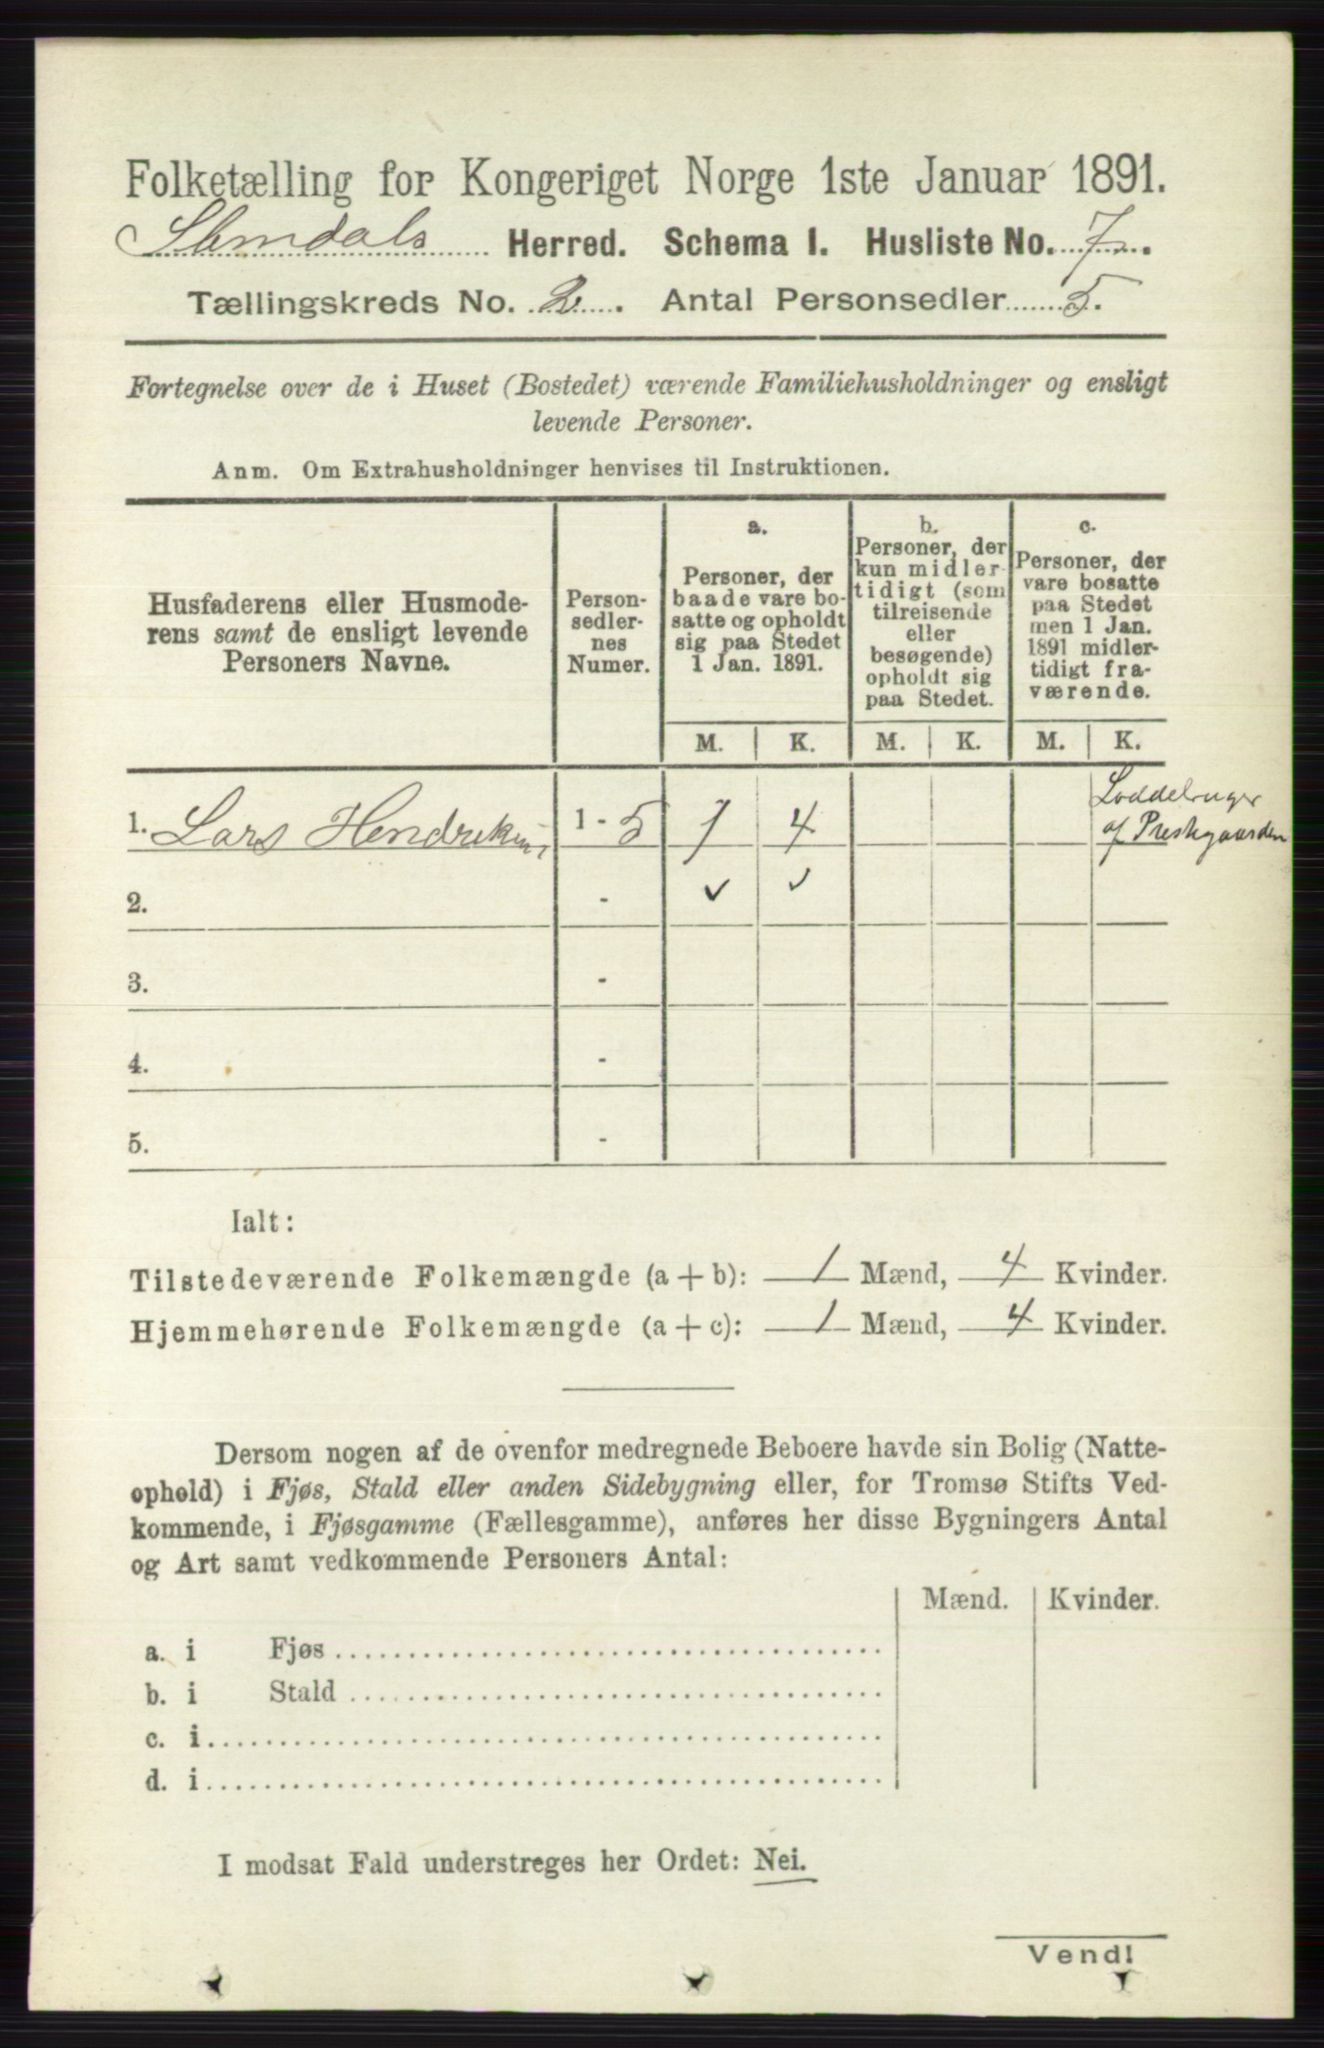 Folketælling for Kongeriget Norge 1ste Januar 1891.
Slemdals Herred. Schema I. Husliste No. 7.
Tællingskreds No. 2. Antal Personsedler 5.
Fortegnelse over de i Huset (Bostedet) værende Familiehusholdninger og ensligt
levende Personer.
Anm. Om Extrahusholdninger henvises til Instruktionen.
Husfaderens eller Husmode-
rens samt de ensligt levende
Personers Navne.
Person-
sedler-
nes
Numer.
a.
Personer, der
baade vare bo-
satte og opholdt
sig paa Stedet
1 Jan. 1891.
b.
Personer, der
kun midler-
tidigt (som
tilreisende
eller
besøgende)
opholdt sig
paa Stedet.
c.
Personer, der
vare bosatte
paa Stedet
men 1 Jan.
1891 midler-
tidigt fra-
værende.
M. K. M. K. M. K.
1. Lars Hendriksen, 1 - 5 1 4
af Prestegaarden
2. - ✓ ✓
3. -
4. -
5. -
Ialt:
Tilstedeværende Folkemængde (a + b): 1 Mænd, 4 Kvinder.
Hjemmehørende Folkemængde (a + c): 1 Mænd, 4 Kvinder.
Dersom nogen af de ovenfor medregnede Beboere havde sin Bolig (Natte-
ophold) i Fjøs, Stald eller anden Sidebygning eller, for Tromsø Stifts Ved-
kommende, i Fjøsgamme (Fællesgamme), anføres her disse Bygningers Antal
og Art samt vedkommende Personers Antal:
Mænd. Kvinder.
a. i Fjøs
b. i Stald
c. i
d. i
I modsat Fald understreges her Ordet: Nei.
Vend!